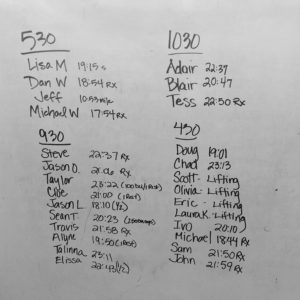 530
Lisa M 19:15 s
Dan W 18:54 Rx
Jeff
Michael W 17:54 Rx
1030
Adair 22:37
Blair 20:47
Tess 22:50 Rx
930
Steve 22:37 Rx
Jason O. Rx
Taylor 23:22
Cloe 21:00
Jason L 18:10 (1/2)
Sean T. 20:23
Travis 21:58 Rx
Alyne 19:50
Talinna 23:11
Elissa 22:43 (1/2)
430
Doug 19:01
Chad 23:13
Scott - Lifting
Olivia - Lifting
Eric - Lifting
Laura K. - Lifting
Ivo 20:10
Michael 18:44 Rx
Sam 21:50 Rx
John 21:59 Rx